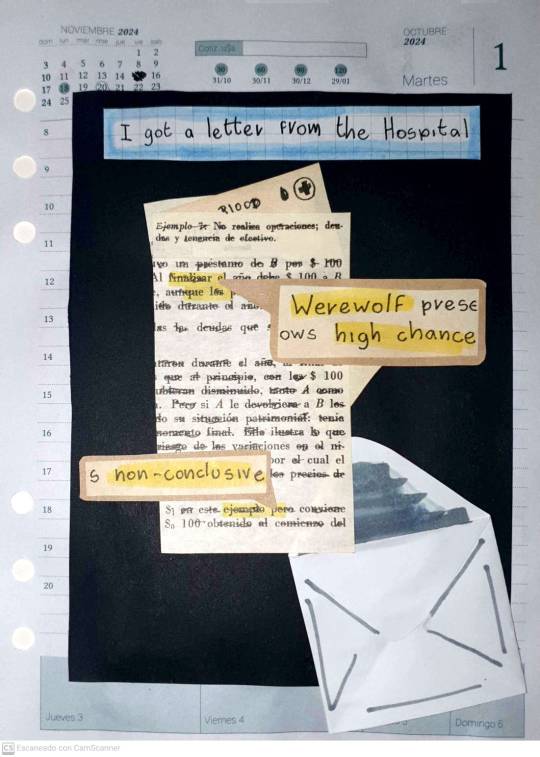 NOVIEMBRE 2024
dom lun mar mie jue vie sab
1 2
3 4 5 6 7 8 9
10 11 12 13 14 16
17 18 19 20 21 22 23
24 25
Cotiz. u$s
30 60 90 120
31/10 30/11 30/12 29/01
OCTUBRE
2024
1
Martes
I got a letter from the Hospital
8
9
10
11
12
13
14
15
16
17
18
19
20
BLOOD
Ejemplo 7: No realiza operaciones; deu-
das y tenencia de efectivo.
uvo un préstamo de B por $ 100
Al finalizar el año debe $ 100 a B
, aunque los p
ido durante el año
as las deudas que
Werewolf prese
ows high chance
durante el año,
que al principio, con los $ 100
disminuido, tanto A como
. Pero si A le devolviera a B los
do su situación patrimonial: tenía
momento final. Ello ilustra lo que
riesgo de las variaciones en el ni-
por el cual el
los precios de
s non-conclusive
S₁ en este ejemplo pero conviene
S₀ 100 obtenido al comienzo del
Jueves 3
Viernes 4
Domingo 6
CS Escaneado con CamScanner